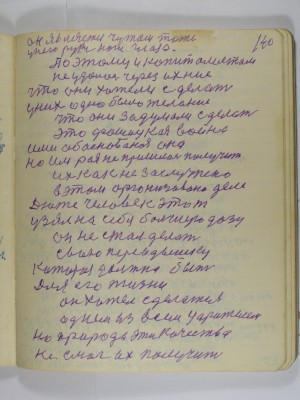 он явлений чутам тоже
у него руки ноги глаза. 140
Поэтому и копиталистам
неудачно через их ние
что они хотели сделат
у них одно было желание
что они задумали сделат
это война
она
но им рая не пришлося получит
их как не заслужено
в этом организовано деле
Дюже человек этот
узял на себя болшую дозу
он не стал делат
свою передышку
Которая должна быт
для его жизни
он хотел сделатця
одним из всем ударителем
Но природа эти качества
не смог их получит